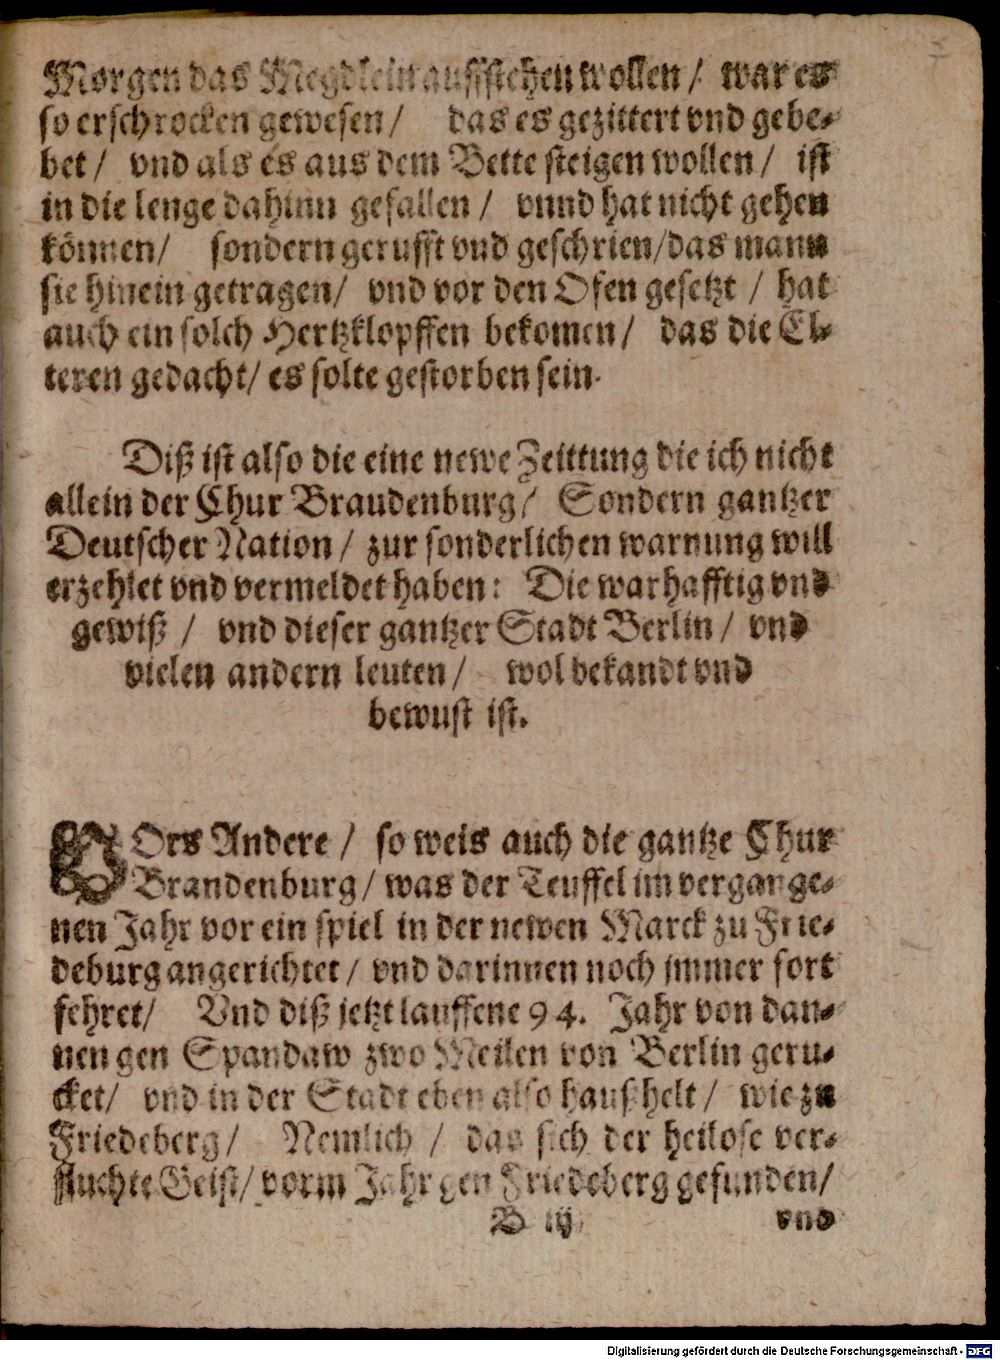 Morgen das Megdlein auffstehen wollen / war es
so erschrocken gewesen / das es gezittert vnd gebe-
bet / vnd als es aus dem Bette steigen wollen / ist
in die lenge dahinn gefallen / vnnd hat nicht gehen
können / sondern gerufft vnd geschrien / das mann
sie hinein getragen / vnd vor den Ofen gesetzt / hat
auch ein solch Hertzklopffen bekomen / das die El-
teren gedacht / es solte gestorben sein.
Diß ist also die eine newe Zeittung die ich nicht
allein der Chur Braudenburg / Sondern gantzer
Deutscher Nation / zur sonderlichen warnung will
erzehlet vnd vermeldet haben: Die warhafftig vnd
gewiß / vnd dieser gantzer Stadt Berlin / vnd
vielen andern leuten / wol bekandt vnd
bewust ist.
VOrs Andere / so weis auch die gantze Chur
Brandenburg / was der Teuffel im vergange-
nen Jahr vor ein spiel in der newen Marck zu Frie-
deburg angerichtet / vnd darinnen noch jmmer fort
fehret / Vnd diß jetzt lauffene 94. Jahr von dan-
nen gen Spandaw zwo Meilen von Berlin geru-
cket / vnd in der Stadt eben also haußhelt / wie zu
Friedeberg / Nemlich / das sich der heilose ver-
fluchte Geist / vorm Jahr gen Friedeberg gefunden /
B iij vnd
Digitalisierung gefördert durch die Deutsche Forschungsgemeinschaft - DFG